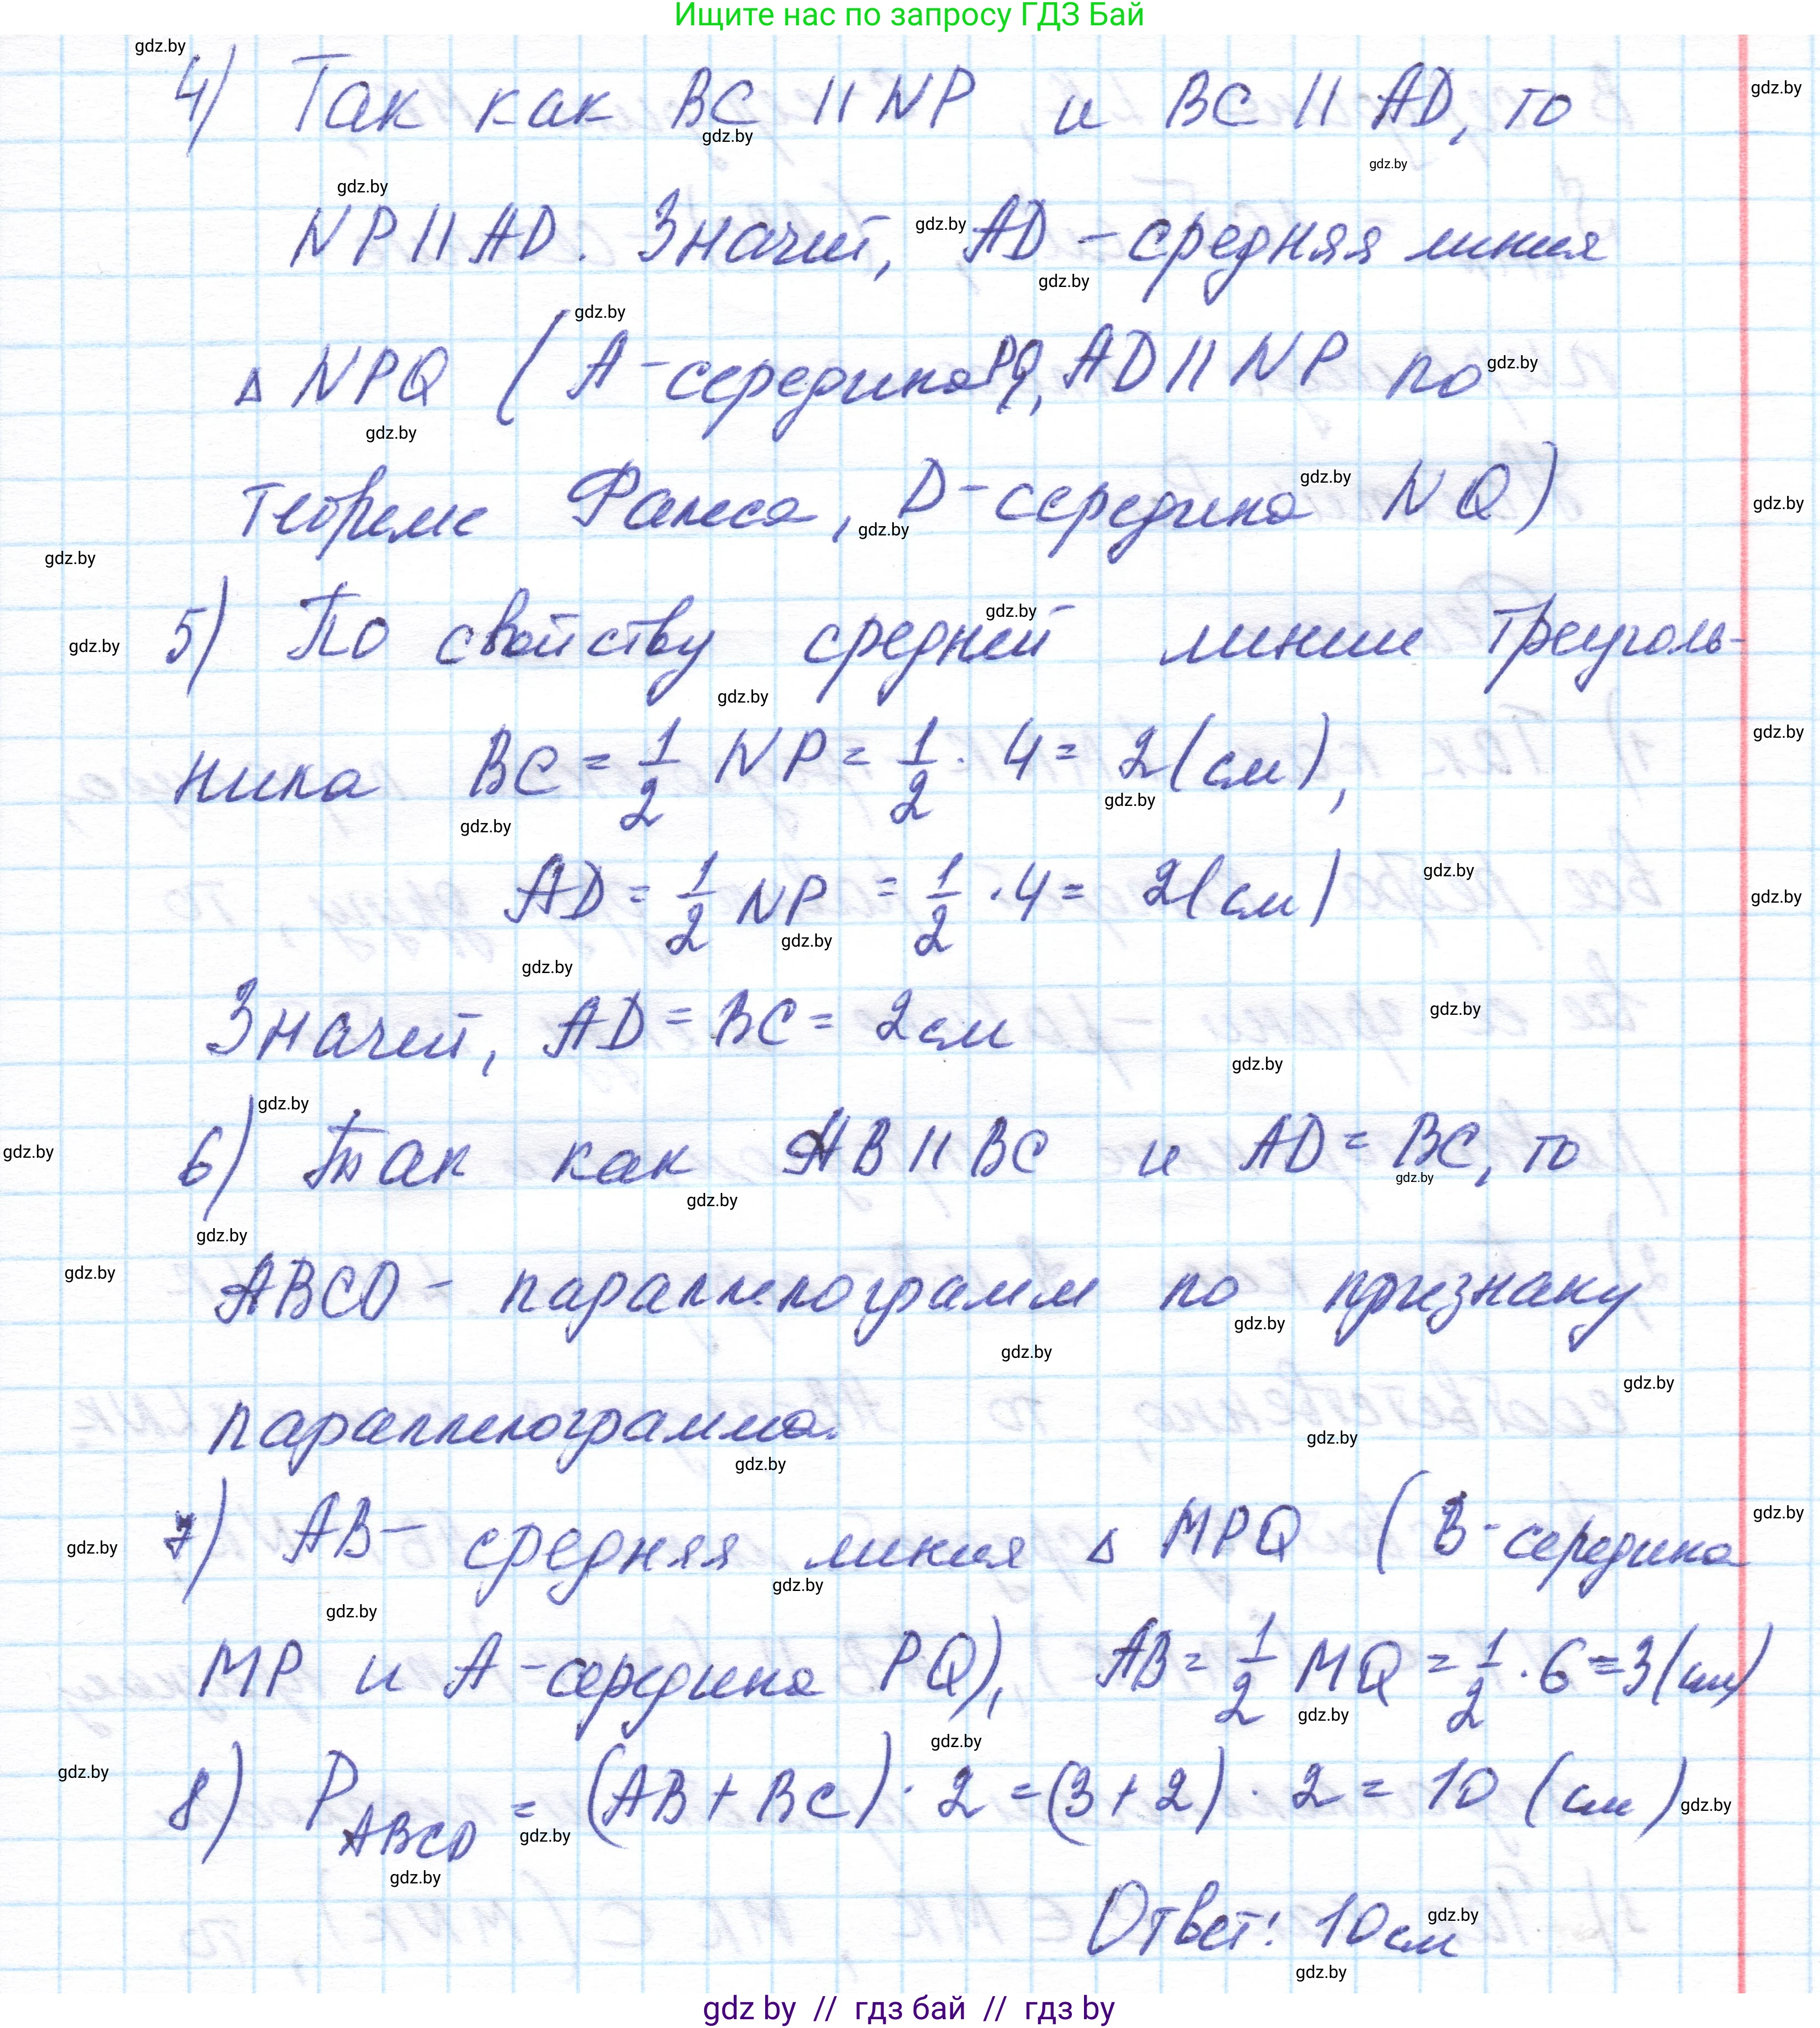 Ищите нас по запросу ГДЗ Бай
4) Так как BC || NP и BC || AD, то
NP || AD. Значит, AD - средняя линия
Δ NPQ (A - середина PQ, AD || NP по
теореме Фалеса, D - середина NQ)
5) По свойству средней линии треуголь-
ника BC = 1/2 NP = 1/2 · 4 = 2 (см),
AD = 1/2 NP = 1/2 · 4 = 2 (см)
Значит, AD = BC = 2 см
6) Так как AB || BC и AD = BC, то
ABCD - параллелограмм по признаку
параллелограмма.
7) AB - средняя линия Δ MPQ (B - середина
MP и A - середина PQ), AB = 1/2 MQ = 1/2 · 6 = 3 (см)
8) P ABCD = (AB + BC) · 2 = (3 + 2) · 2 = 10 (см)
Ответ: 10 см
gdz by // гдз бай // гдз by